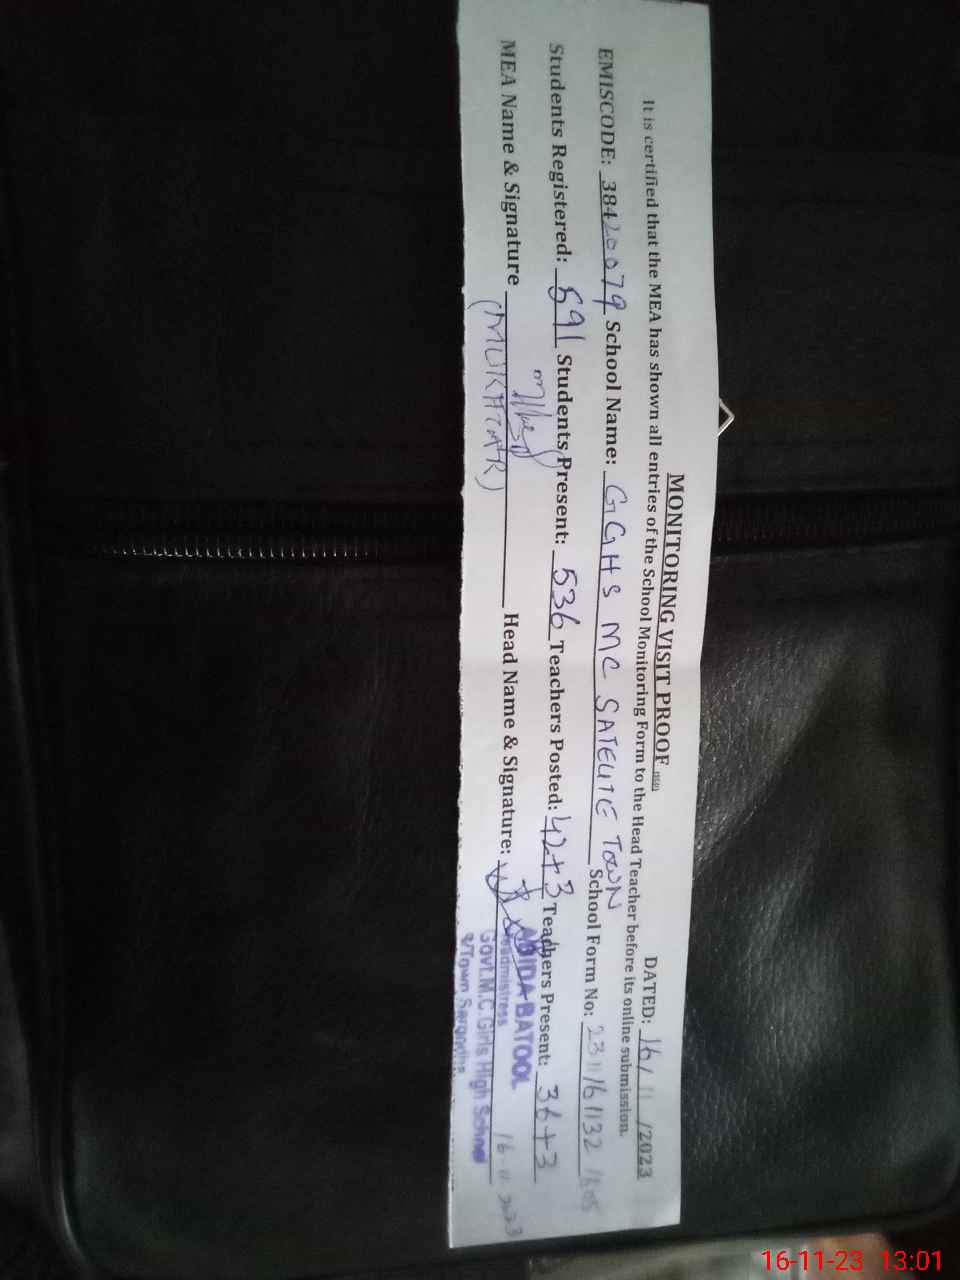 MONITORING VISIT PROOF
DATED: 16/11/2023
It is certified that the MEA has shown all entries of the School Monitoring Form to the Head Teacher before its online submission.
EMISCODE: 38420079 School Name: GGHS MC SATELITE TOWN School Form No: 2311161132
Students Registered: 591 Students Present: 536 Teachers Posted: 42+3 Teachers Present: 36+3
MEA Name & Signature Head Name & Signature:
(MUKHTAR)
ABIDA BATOOL
Headmistress
Govt.M.C.Girls High School
S/Town Sargodha
16-11-2023
16-11-23 13:01